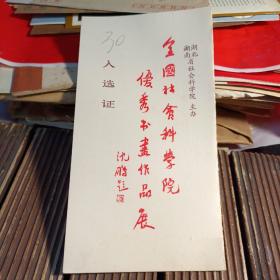 湖北
湖南省社会科学院 主办
全國社會科學院
優秀书畫作品展
沈鵬题
入选证
30